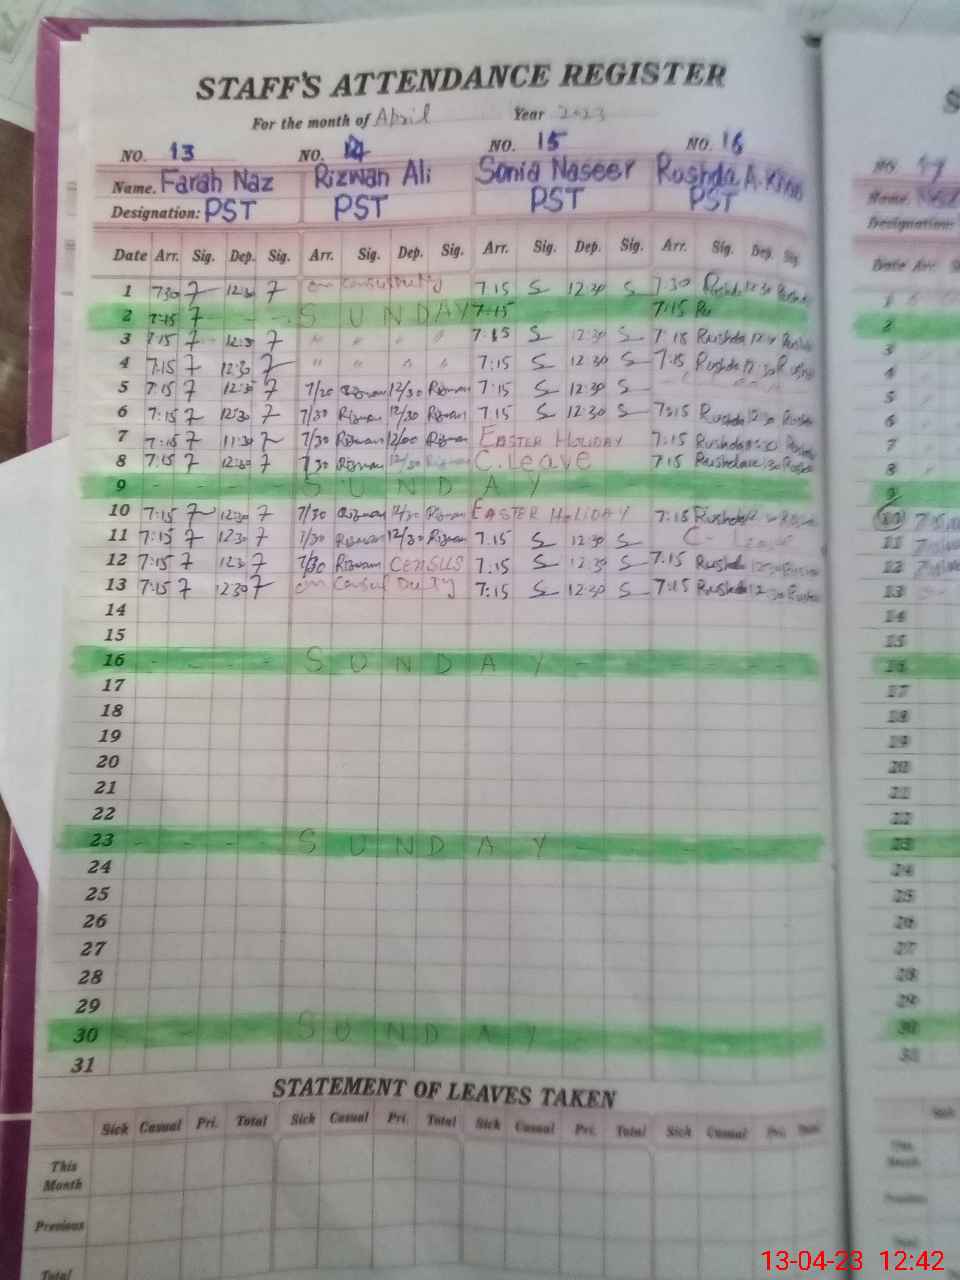 STAFF'S ATTENDANCE REGISTER
For the month of April Year 2023
NO. 13 NO. 14 NO. 15 NO. 16
Name. Farah Naz Rizwan Ali Sonia Naseer Rushda A.
Designation: PST PST PST PST
Date Arr. Sig. Dep. Sig. Arr. Sig. Dep. Sig. Arr. Sig. Dep. Sig. Arr. Sig. Dep. Sig.
1 7:30 12:30 on Duty 7.15 S 12:30 S 7.30 Rushda 12:30 Rushda
2 7:15 - - - S U N D A Y 7:15 7:15 Ru
3 7:15 12:30 " " " " 7:15 S 12:30 S 7:15 Rushda Rushda
4 7:15 12:30 " " " " 7:15 S 12:30 S 7:15 Rushda 12:30 Rushda
5 7:15 12:30 7/20 Rizwan 12/30 Rizwan 7:15 S 12:30 S
6 7:15 12:30 7/30 Rizwan 12/30 Rizwan 7.15 S 12:30 S 7:15 Rushda 12:30 Rushda
7 7:15 11:30 7/30 Rizwan 12/00 Rizwan EASTER HOLIDAY 7:15 Rushda Rushda
8 7:15 12:30 7/30 Rizwan 12/30 Rizwan C. Leave 7:15 Rushda 12:30 Rushda
9 - - - - S U N D A Y
10 7:15 12:30 7/30 Rizwan 12/30 Rizwan EASTER HOLIDAY 7:15 Rushda Rushda
11 7:15 12:30 7/30 Rizwan 12/30 Rizwan 7.15 S 12:30 S C - Leave
12 7:15 7/30 Rizwan CENSUS 7:15 S 12:30 S 7.15 Rushda Rushda
13 7:15 12:30 on Duty 7:15 S 12:30 S 7:15 Rushda 12:30 Rushda
14
15
16 - - - - S U N D A Y
17
18
19
20
21
22
23 - - - - S U N D A Y
24
25
26
27
28
29
30 S U N D A Y
31
STATEMENT OF LEAVES TAKEN
Sick Casual Pri. Total Sick Casual Pri. Total Sick Casual Pri. Total Sick Casual Pri. Total
This
Month
Previous
Total
13-04-23 12:42